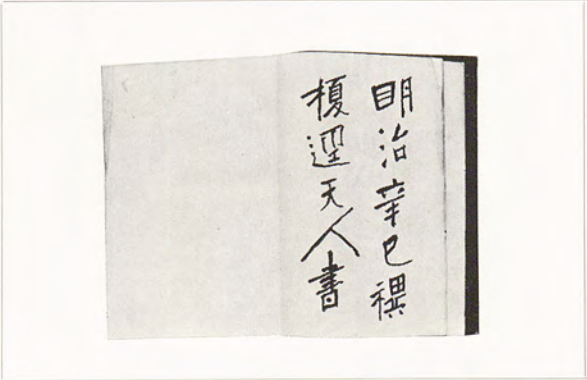 明治辛巳禩
榎天人書